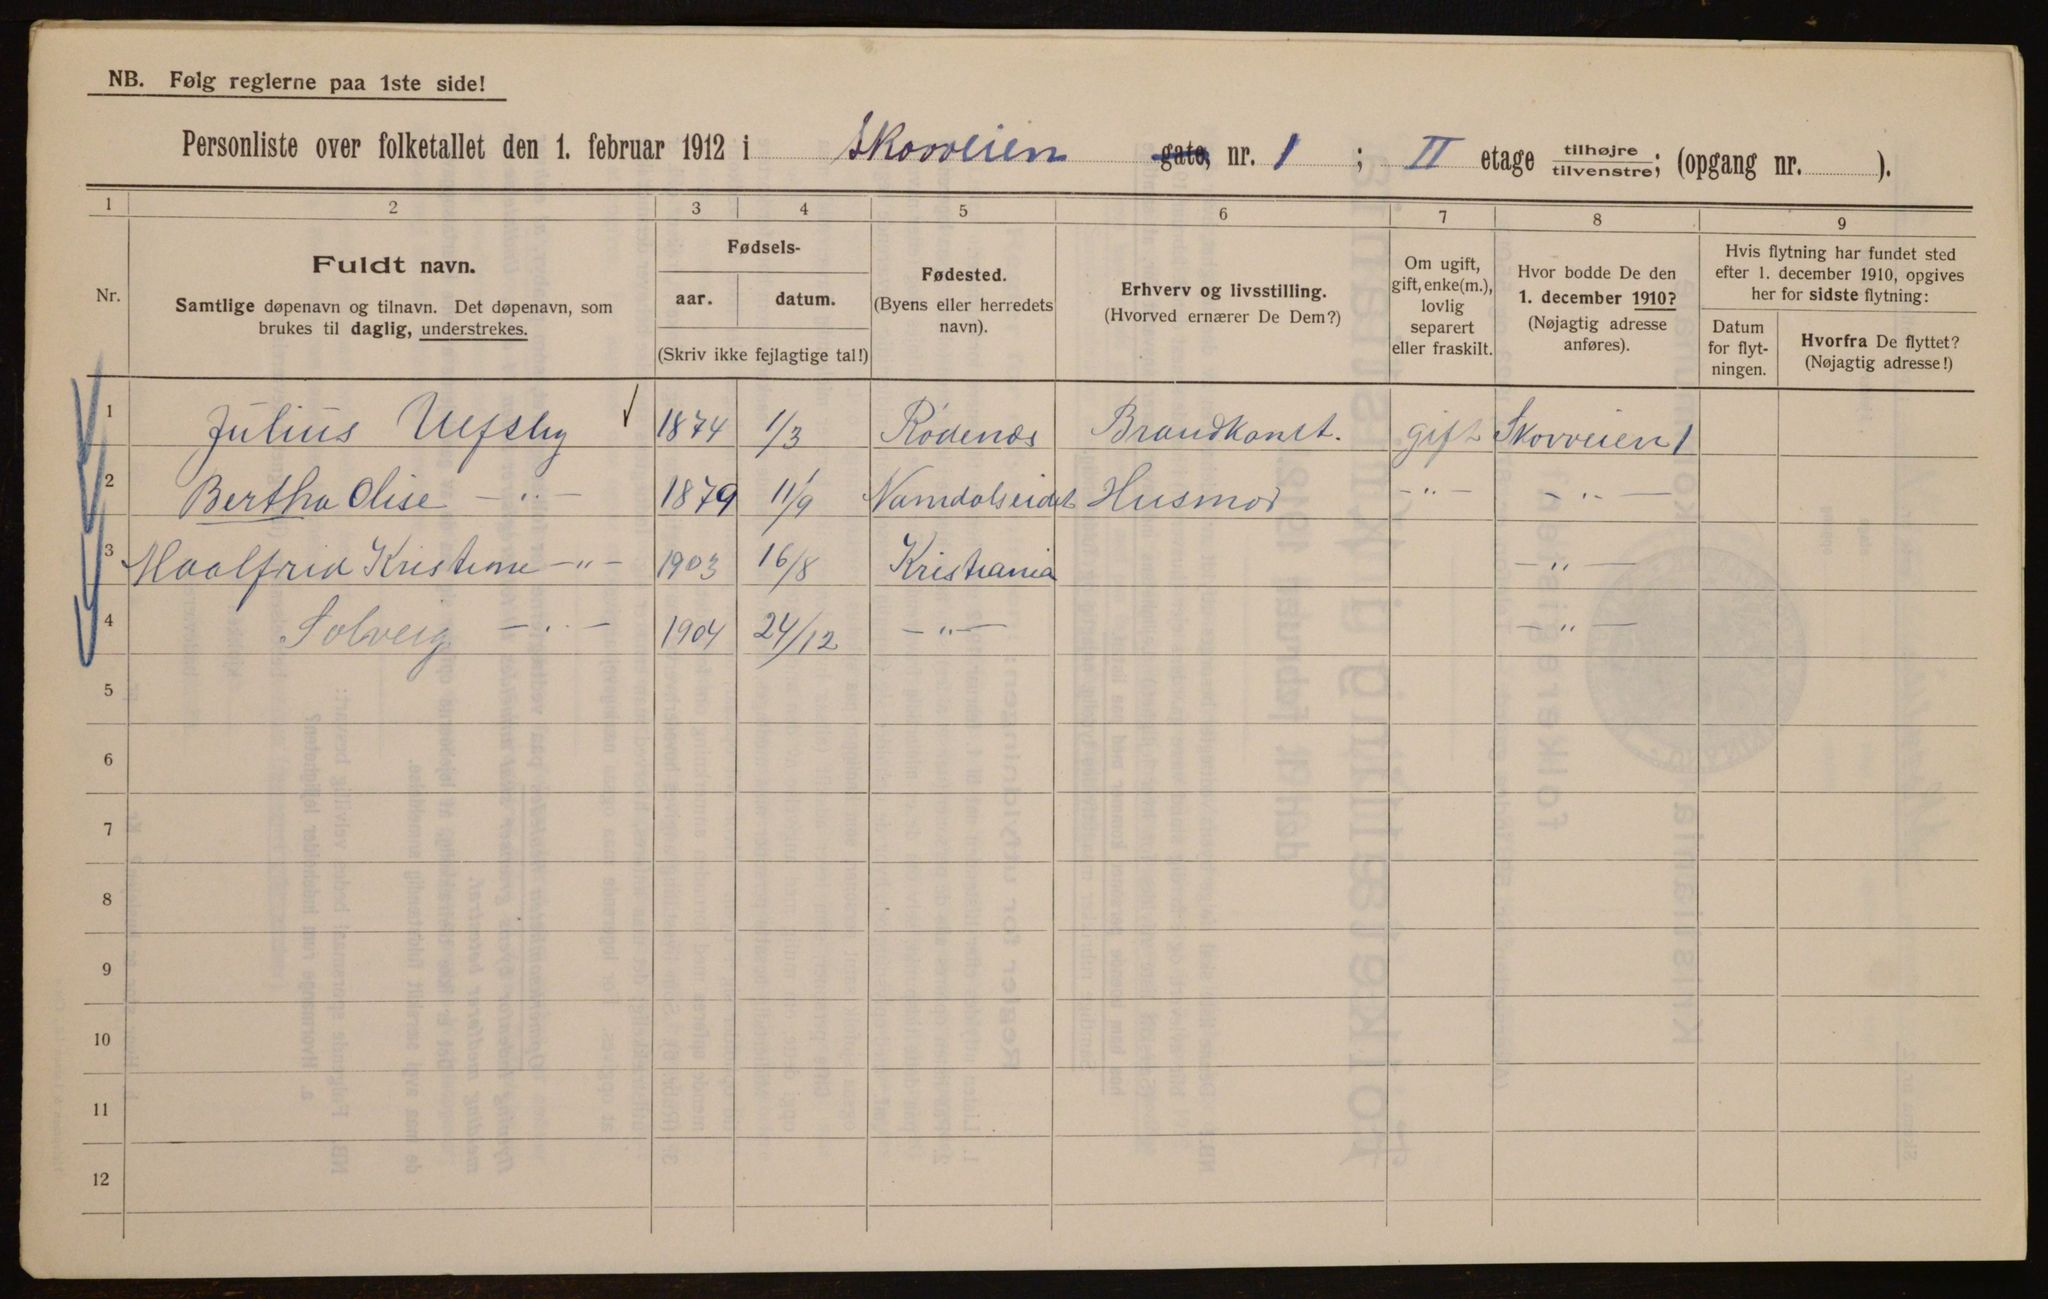 NB. Følg reglerne paa 1ste side!
Personliste over folketallet den 1. februar 1912 i Skovveien gate, nr. 1 ; II etage tilhøjre/tilvenstre; (opgang nr. ).
1 2 3 4 5 6 7 8 9
Nr.
Fuldt navn.
Samtlige døpenavn og tilnavn. Det døpenavn, som
brukes til daglig, understrekes.
Fødsels-
aar. datum.
(Skriv ikke fejlagtige tal!)
Fødested.
(Byens eller herredets
navn).
Erhverv og livsstilling.
(Hvorved ernærer De Dem?)
Om ugift,
gift, enke(m.),
lovlig
separert
eller fraskilt.
Hvor bodde De den
1. december 1910?
(Nøjagtig adresse
anføres).
Hvis flytning har fundet sted
efter 1. december 1910, opgives
her for sidste flytning:
Datum
for flyt-
ningen.
Hvorfra De flyttet?
(Nøjagtig adresse!)
1 Julius 1874 1/3 Rødenæs Brandkonst. gift Skovveien 1
2 Bertha Olise —„— 1879 11/9 Namdalseidet Husmor —„— —„—
3 Maalfrid Kristine —„— 1903 16/8 Kristiania —„—
4 Solveig —„— 1904 24/12 —„— —„—
5
6
7
8
9
10
11
12